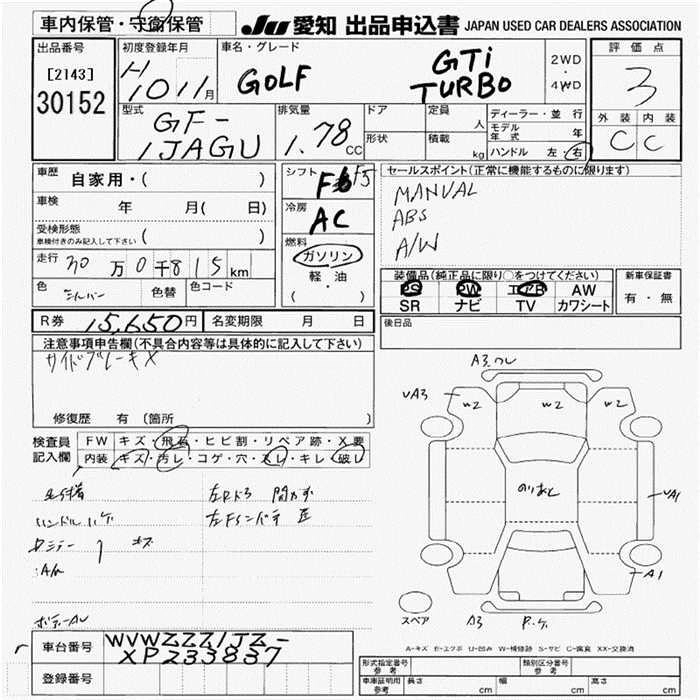 車内保管・守衛保管
JU 愛知 出品申込書 JAPAN USED CAR DEALERS ASSOCIATION
出品番号
[2143]
30152
初度登録年月
H 10 11月
車名・グレード
GOLF
GTi
TURBO
2WD
・
4WD
評価点
3
外装 内装
C C
型式
GF-
1JAGU
排気量
1.78 CC
ドア
形状
定員
人
積載
kg
ディーラー・並行
モデル年式 年
ハンドル 左・右
車歴
自家用・( )
車検
年 月( 日)
受検形態
車検付きのみ記入して下さい ( )
走行
万0千815km
色
シルバー
色替
色コード
シフト
F5
冷房
AC
燃料
ガソリン
・
軽・油
( )
セールスポイント(正常に機能するものに限ります)
MANUAL
ABS
A/W
装備品(純正品に限り○をつけてください)
PS PW エアB AW
SR ナビ TV カワシート
新車保証書
有・無
後日品
R券 15,650円
名変期限 月 日
注意事項申告欄(不具合内容等は具体的に記入して下さい)
サイドブレーキX
修復歴 有 (箇所 )
検査員
記入欄
FW キズ・飛石・ヒビ割・リペア跡・X要
内装 キズ・汚レ・コゲ・穴・スレ・キレ・破レ
ハンドル ハゲ
キズ
A3
A3
W2 W2 W2
A1
スペア
A3
A-キズ E-エクボ U-凹み W-補修跡 S-サビ C-腐食 XX-交換済
車台番号
WVWZZZ1JZ-
XP233837
登録番号
形式指定番号
参考
類別区分番号
参考
車庫証明用
参考
長さ cm
幅 cm
高さ cm